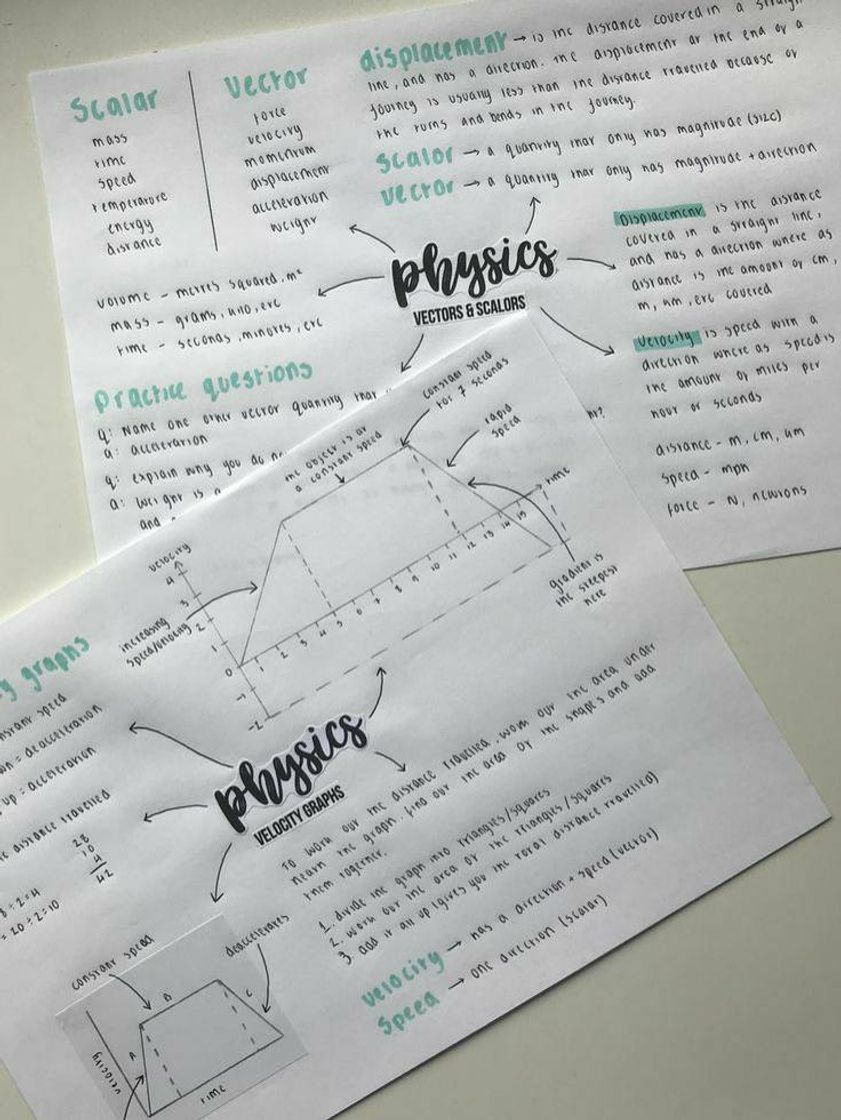 Scalar
mass
time
speed
temperature
energy
distance
Vector
force
velocity
momentum
displacement
acceleration
weight
displacement → is the distance covered in a straigh
line, and has a direction. The displacement at the end of a
journey is usually less than the distance travelled because of
the turns and bends in the journey.
scalor → a quantity that only has magnitude (size)
vector → a quantity that only has magnitude + direction
physics
VECTORS & SCALORS
volume - metres squared, m²
mass - grams, kilo, etc
time - seconds, minutes, etc
Displacement is the distance
covered in a straight line,
and has a direction where as
distance is the amount of cm,
m, km, etc covered
Velocity is speed with a
direction where as speed is
the amount of miles per
hour or seconds
distance - m, cm, km
speed - mph
force - N, newtons
practice questions
q: Name one other vector quantity that
a: acceleration
q: explain why you do
a: weight is a
and
constant speed
for 7 seconds
the object is at
a constant speed
rapid
speed
time
velocity
4
3
2
1
0
-1
-2
1 2 3 4 5 6 7 8 9 10 11 12 13 14 15
increasing
speed/velocity
gradient is
the steepest
here
y graphs
nstant speed
wn = deacceleration
up = acceleration
distance travelled
28
10
4
42
8 ÷ 2 = 4
= 20 ÷ 2 = 10
physics
VELOCITY GRAPHS
To work out the distance travelled, work out the area under
neath the graph. find out the area of the shapes and add
them together.
1. divide the graph into triangles/squares
2. work out the area of the triangles/squares
3. add it all up (gives you the total distance travelled)
velocity → has a direction + speed (vector)
speed → one direction (scalar)
constant speed
deaccelerates
A
B
C
velocity
time